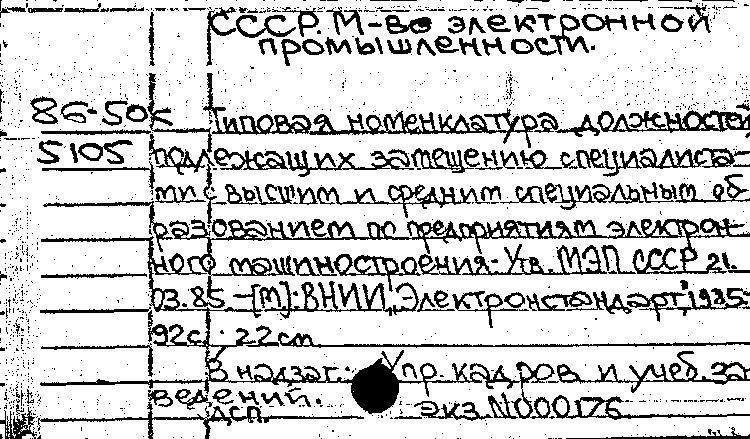 СССР. М-во электронной
промышленности.
86-50к Типовая номенклатура должностей
5105 подлежащих замещению специалиста-
ми с высшим и средним специальным об
разованием по предприятиям электрон-
ного машиностроения. Утв. МЭП СССР 21.
03.85. - [М]: ВНИИ "Электронстандарт", 1985-
92с.; 22см
В надзаг.: Упр. кадров и учеб. за
ведений.
ДСП. Экз. N000176